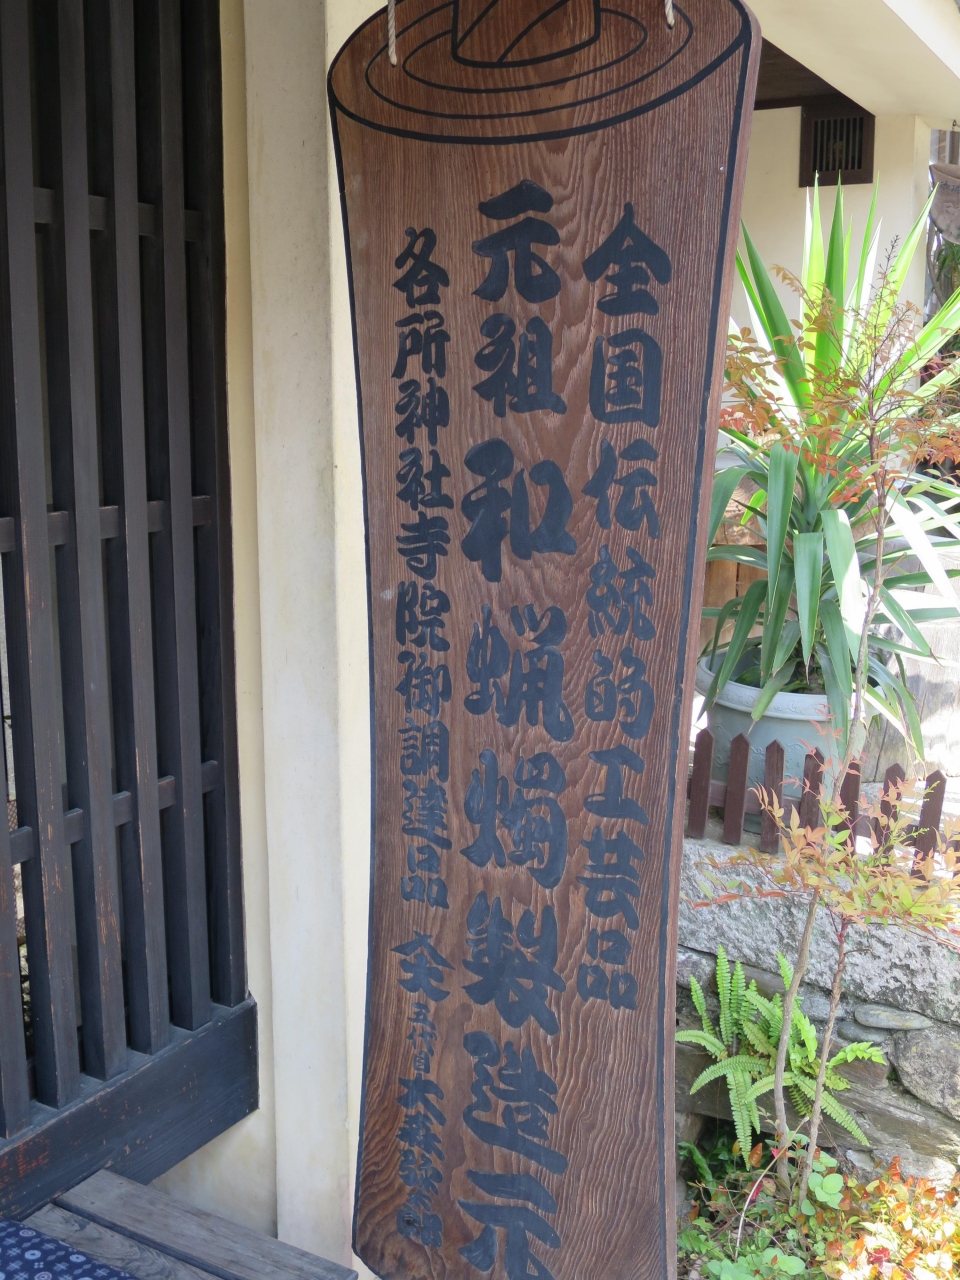 全国伝統的工芸品
元祖和蝋燭製造元
各所神社寺院御調達品
五代目 大森弥太郎